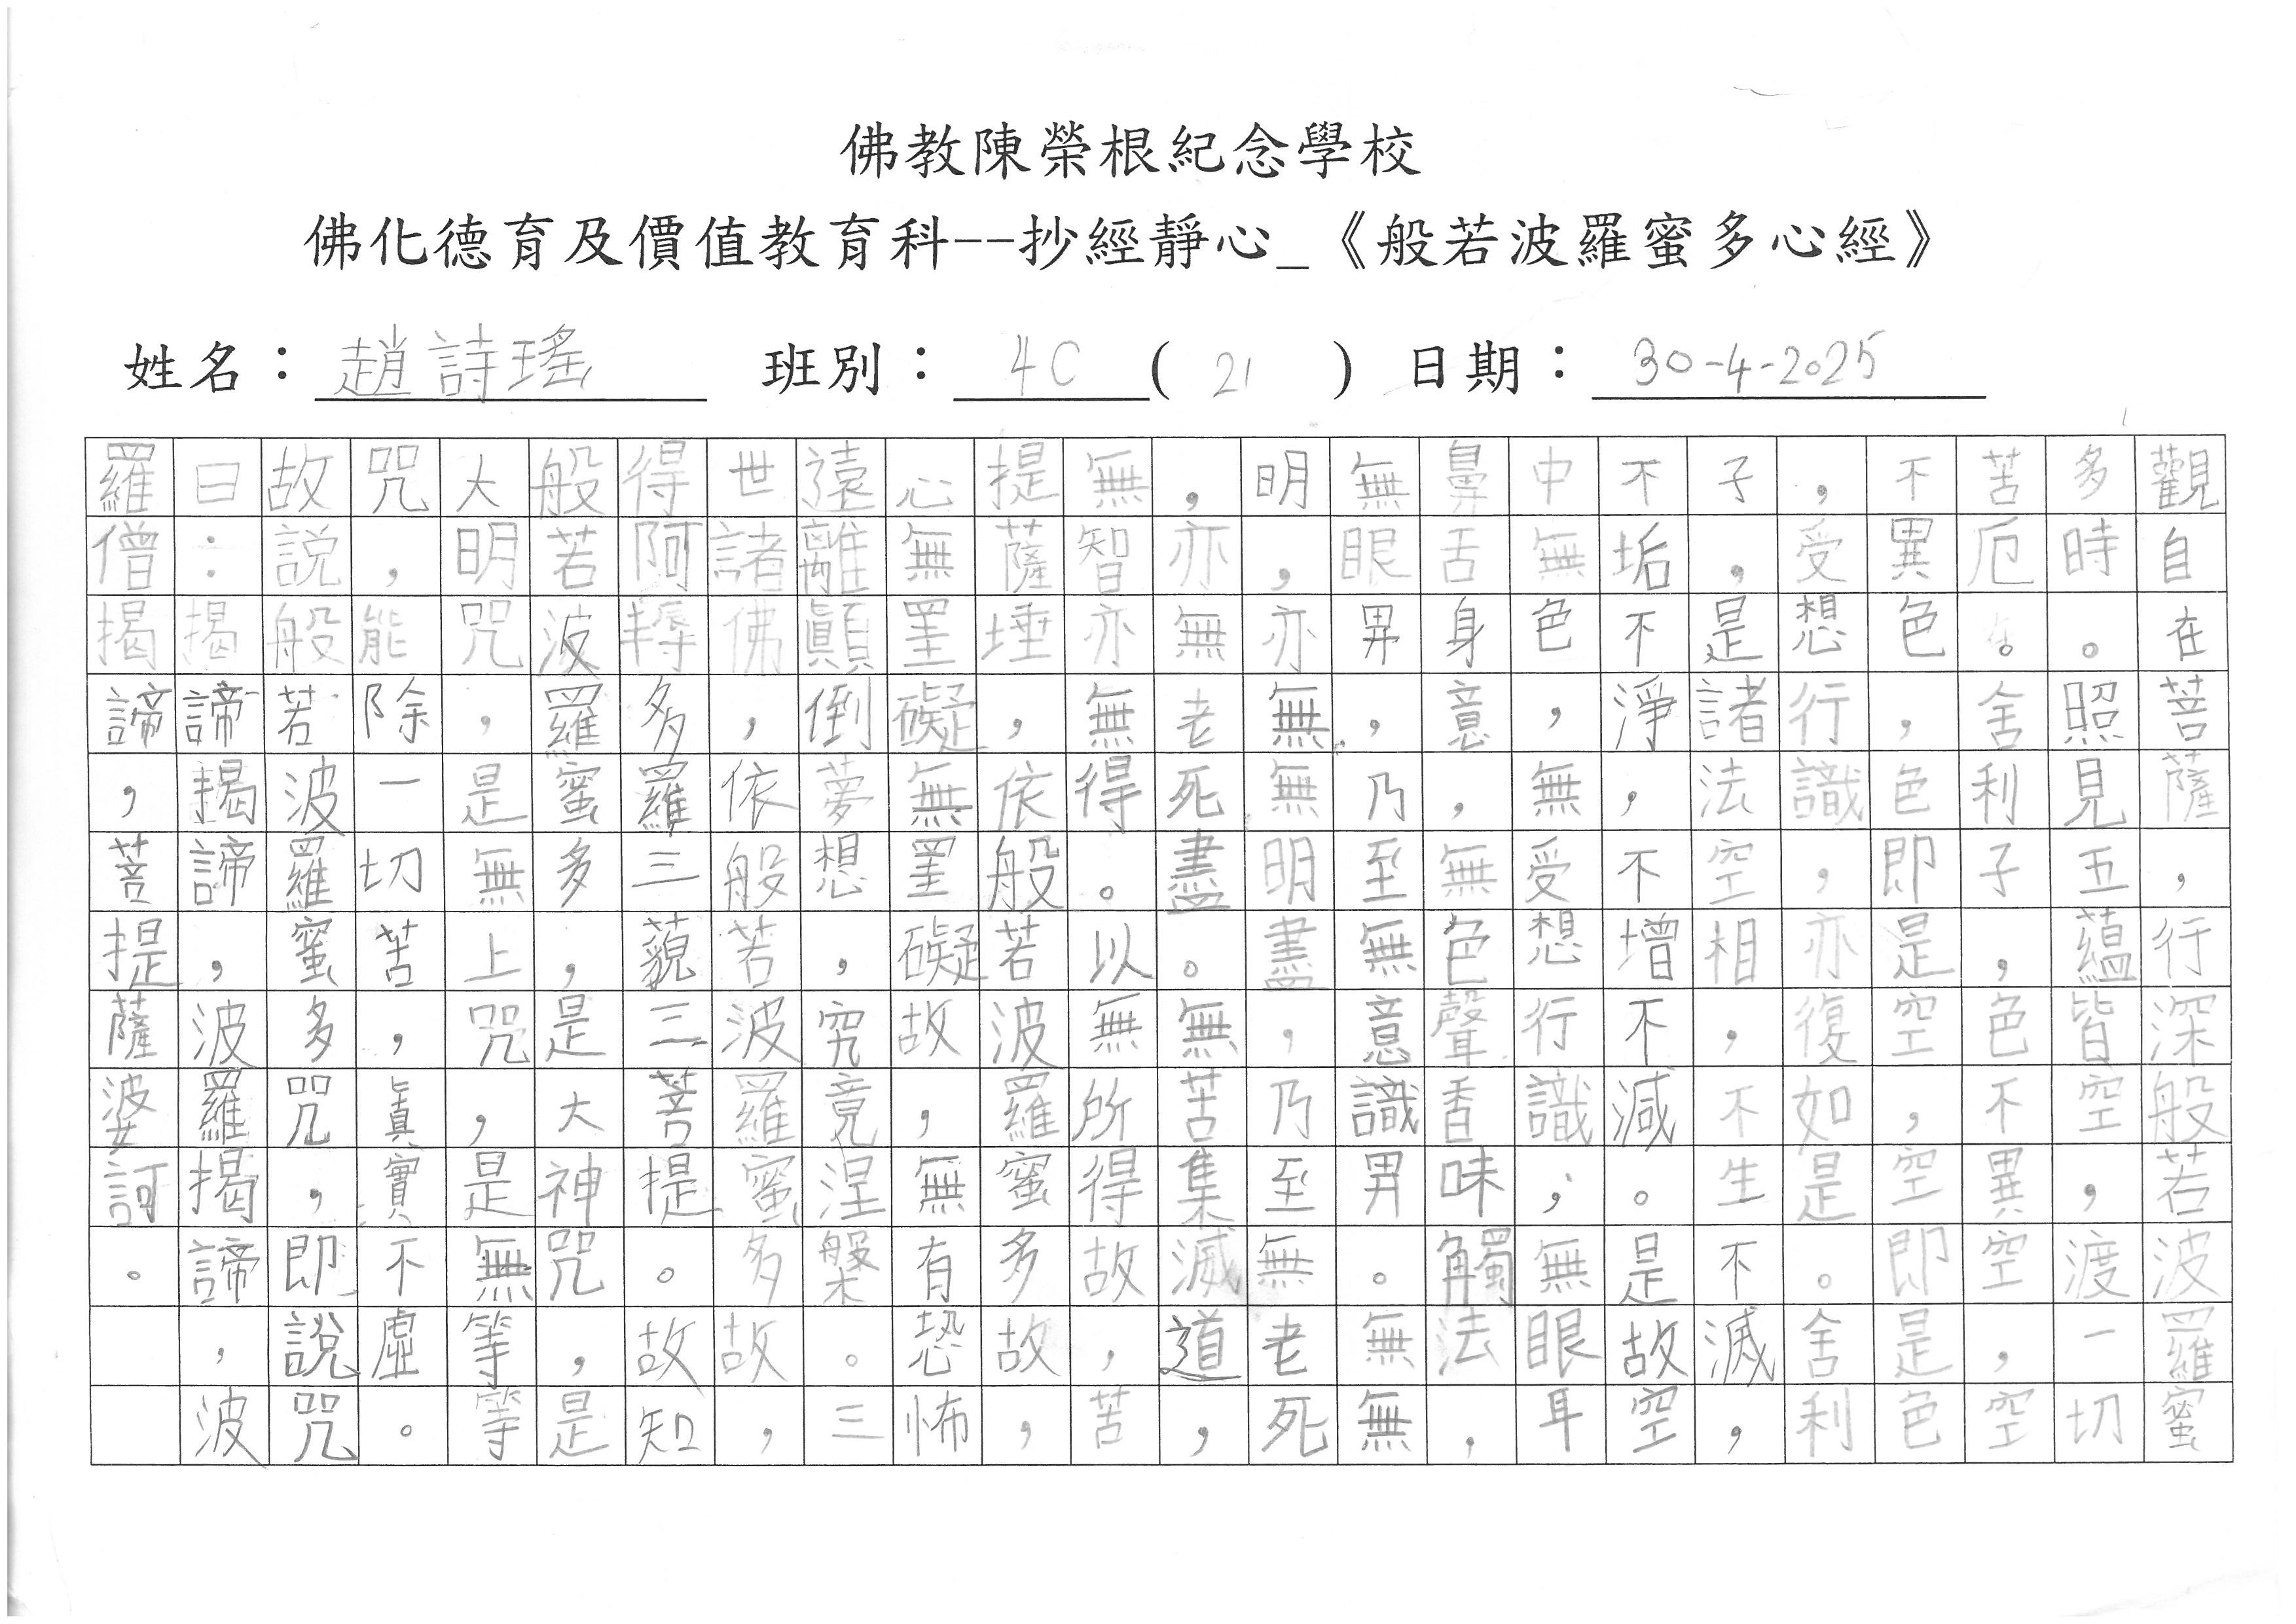 佛教陳榮根紀念學校
佛化德育及價值教育科--抄經靜心_《般若波羅蜜多心經》
姓名：趙詩瑤 班別：4C(21) 日期：30-4-2025
觀自在菩薩，行深般若波羅蜜
多時。照見五蘊皆空，渡一切
苦厄。舍利子，色不異空，空
不異色，色即是空，即是色
，受想行識，亦復如是。舍利
子，是諸法空相，不生不滅，
不垢不淨，不增不減。是故空
中無色，無受想行識；無眼耳
鼻舌身意，無色聲香味觸法，
無眼界，乃至無意識界。無無
明，亦無無明盡，乃至無老死
，亦無老死盡。無苦集滅道，
無智亦無得。以無所得故，苦
提薩埵，依般若波羅蜜多故，
心無罣礙無罣礙故，無有恐怖
遠離顛倒夢想，究竟涅槃。三
世諸佛，依般若波羅蜜多故，
得阿耨多羅三藐三菩提。故知
般若波羅蜜多，是大神咒，是
大明咒，是無上咒，是無等等
咒，能除一切苦，真實不虛。
故說般若波羅蜜多咒，即說咒
曰：揭諦揭諦，波羅揭諦，波
羅僧揭諦，菩提薩婆訶。